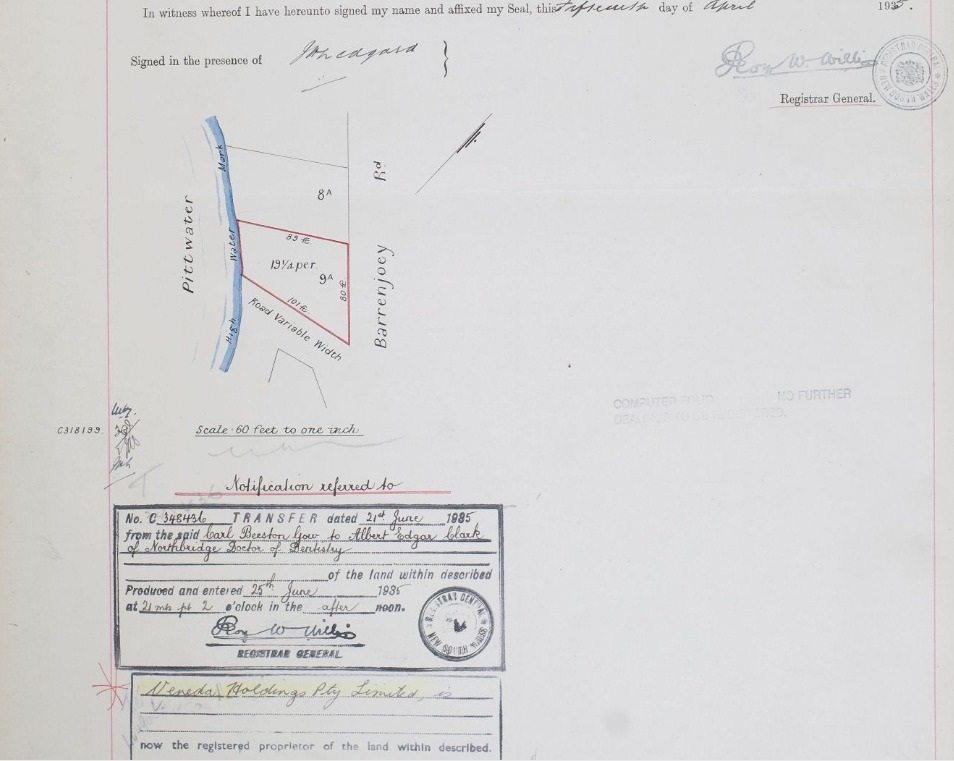 In witness whereof I have hereunto signed my name and affixed my Seal, this fifteenth day of April 1935.
Signed in the presence of
Roy W Willis
Registrar General.
Pittwater
High Water Mark
8A
Barrenjoey Rd
89 ft
19¼ per.
9A
80 ft
101 ft
Road Variable Width
C318199
Scale - 60 feet to one inch
COMPUTER FOLIO NO FURTHER
DEALINGS TO BE REGISTERED.
Notification referred to
No. C 348436 TRANSFER dated 21st June 1935
from the said Carl Beeston Gow to Albert Edgar Clark
of Northbridge Doctor of Dentistry
of the land within described
Produced and entered 25th June 1935
at 21 mts pt 2 o'clock in the after noon.
Roy W Willis
REGISTRAR GENERAL
REGISTRAR GENERAL NEW SOUTH WALES
Veneda Holdings Pty Limited, is
now the registered proprietor of the land within described.